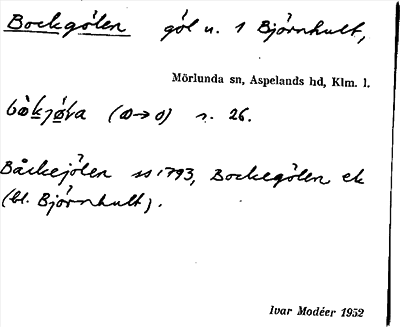 Bockgölen göl n. 1 Björnhult,
Mörlunda sn, Aspelands hd, Klm. l.
(o→o) s. 26.
Båckejölen ss 1793, Bockegölen ek
(bl. Björnhult).
Ivar Modéer 1952